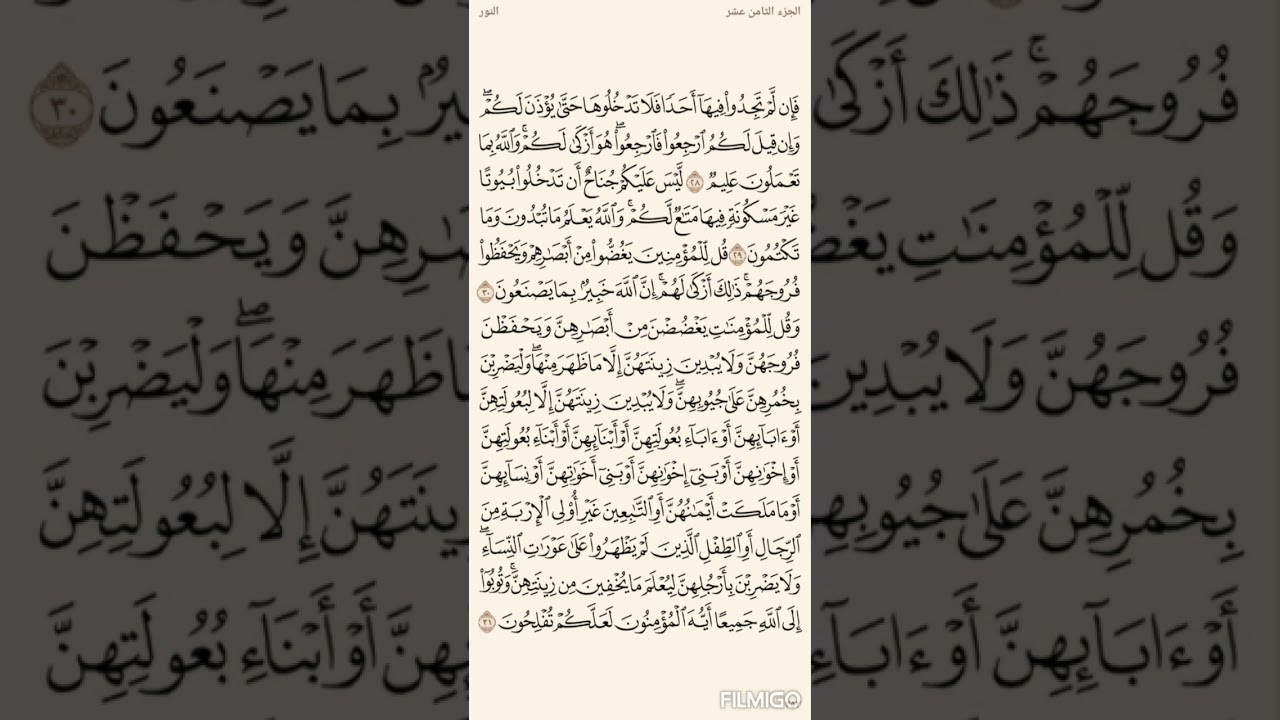 الجزء الثامن عشر
النور
فَإِن لَّمْ تَجِدُوا۟ فِيهَآ أَحَدًا فَلَا تَدْخُلُوهَا حَتَّىٰ يُؤْذَنَ لَكُمْ ۖ
وَإِن قِيلَ لَكُمُ ٱرْجِعُوا۟ فَٱرْجِعُوا۟ ۖ هُوَ أَزْكَىٰ لَكُمْ ۚ وَٱللَّهُ بِمَا
تَعْمَلُونَ عَلِيمٌ ٢٨ لَّيْسَ عَلَيْكُمْ جُنَاحٌ أَن تَدْخُلُوا۟ بُيُوتًا
غَيْرَ مَسْكُونَةٍ فِيهَا مَتَـٰعٌ لَّكُمْ ۚ وَٱللَّهُ يَعْلَمُ مَا تُبْدُونَ وَمَا
تَكْتُمُونَ ٢٩ قُل لِّلْمُؤْمِنِينَ يَغُضُّوا۟ مِنْ أَبْصَـٰرِهِمْ وَيَحْفَظُوا۟
فُرُوجَهُمْ ۚ ذَٰلِكَ أَزْكَىٰ لَهُمْ ۗ إِنَّ ٱللَّهَ خَبِيرٌۢ بِمَا يَصْنَعُونَ ٣٠
وَقُل لِّلْمُؤْمِنَـٰتِ يَغْضُضْنَ مِنْ أَبْصَـٰرِهِنَّ وَيَحْفَظْنَ
فُرُوجَهُنَّ وَلَا يُبْدِينَ زِينَتَهُنَّ إِلَّا مَا ظَهَرَ مِنْهَا ۖ وَلْيَضْرِبْنَ
بِخُمُرِهِنَّ عَلَىٰ جُيُوبِهِنَّ ۖ وَلَا يُبْدِينَ زِينَتَهُنَّ إِلَّا لِبُعُولَتِهِنَّ
أَوْ ءَابَآئِهِنَّ أَوْ ءَابَآءِ بُعُولَتِهِنَّ أَوْ أَبْنَآئِهِنَّ أَوْ أَبْنَآءِ بُعُولَتِهِنَّ
أَوْ إِخْوَٰنِهِنَّ أَوْ بَنِىٓ إِخْوَٰنِهِنَّ أَوْ بَنِىٓ أَخَوَٰتِهِنَّ أَوْ نِسَآئِهِنَّ
أَوْ مَا مَلَكَتْ أَيْمَـٰنُهُنَّ أَوِ ٱلتَّـٰبِعِينَ غَيْرِ أُو۟لِى ٱلْإِرْبَةِ مِنَ
ٱلرِّجَالِ أَوِ ٱلطِّفْلِ ٱلَّذِينَ لَمْ يَظْهَرُوا۟ عَلَىٰ عَوْرَٰتِ ٱلنِّسَآءِ ۖ
وَلَا يَضْرِبْنَ بِأَرْجُلِهِنَّ لِيُعْلَمَ مَا يُخْفِينَ مِن زِينَتِهِنَّ ۚ وَتُوبُوٓا۟
إِلَى ٱللَّهِ جَمِيعًا أَيُّهَ ٱلْمُؤْمِنُونَ لَعَلَّكُمْ تُفْلِحُونَ ٣١
FILMIGO